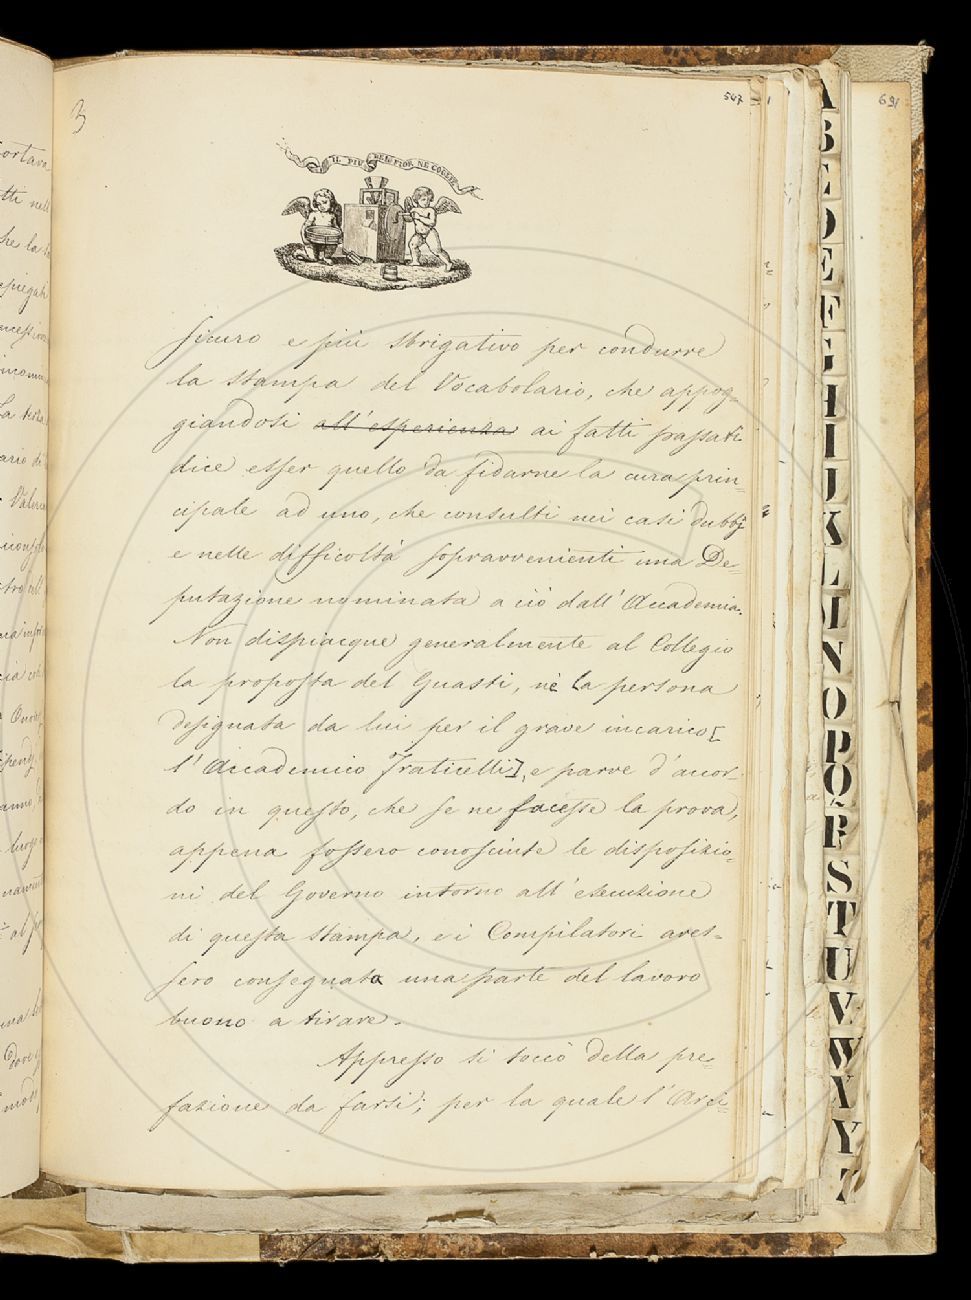 3
547
691
IL PIÙ BEL FIOR NE COGLIE
sicuro e più sbrigativo per condurre
la stampa del Vocabolario, che appog-
giandosi all' esperienza ai fatti passati
dice esser quello da fidarne la cura prin-
cipale ad uno, che consulti nei casi dubbj
e nelle difficoltà sopravvenienti una De-
putazione nominata a ciò dall' Accademia.
Non dispiacque generalmente al Collegio
la proposta del Guasti, nè la persona
designata da lui per il grave incarico [
l' Accademico Fraticelli], e parve d' accor-
do in questo, che se ne facesse la prova,
appena fossero conosciute le disposizio-
ni del Governo intorno all' esecuzione
di questa stampa, e i Compilatori aves-
sero consegnata una parte del lavoro
buono a tirare.
Appresso si toccò della pre-
fazione da farsi; per la quale l' Arci-
A
B
C
D
E
F
G
H
I
J
K
L
M
N
O
P
Q
R
S
T
U
V
W
X
Y
Z